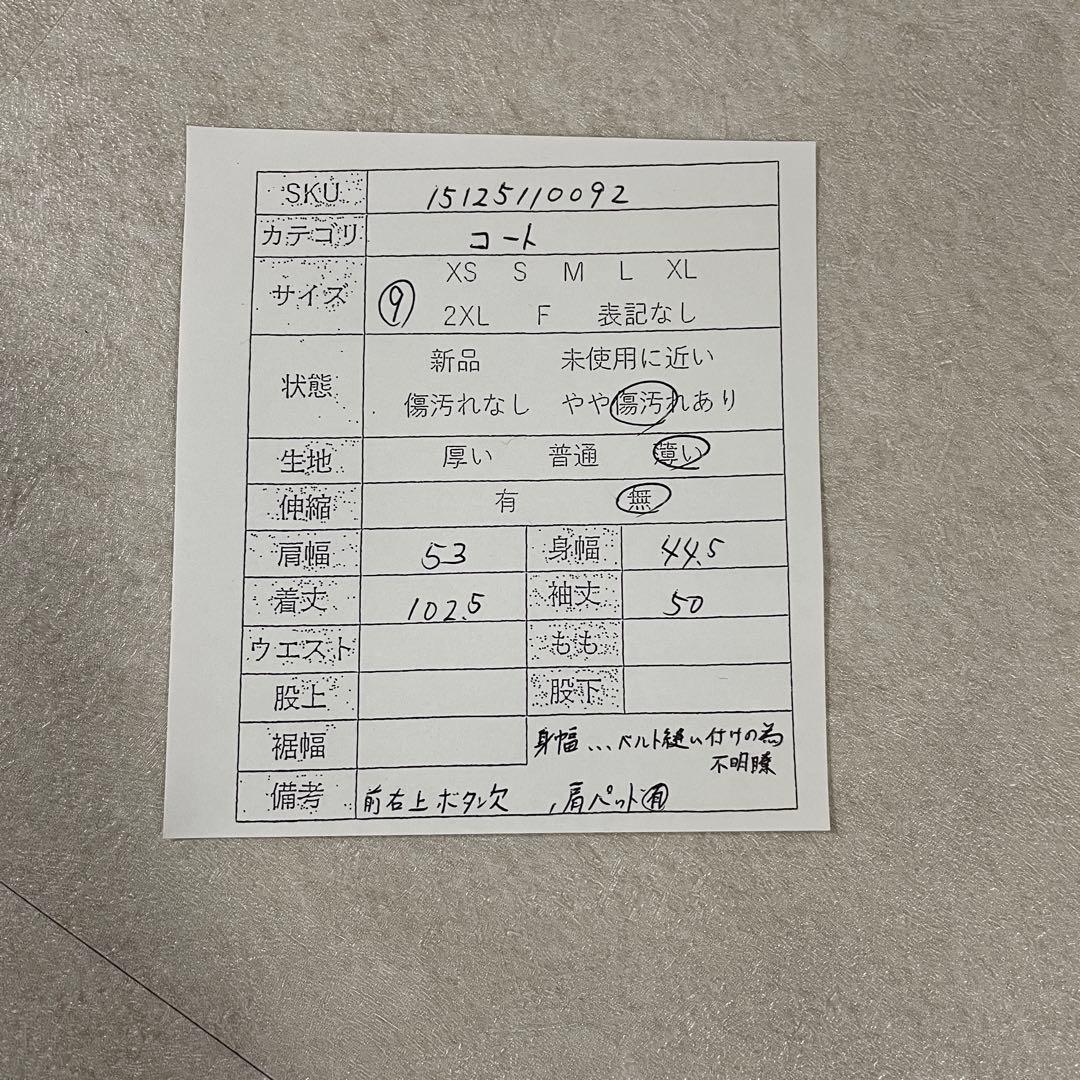 SKU 15125110092
カテゴリ コート
サイズ XS S M L XL
⑨ 2XL F 表記なし
状態 新品 未使用に近い
傷汚れなし やや傷汚れあり
生地 厚い 普通 薄い
伸縮 有 無
肩幅 53 身幅 44.5
着丈 102.5 袖丈 50
ウエスト もも
股上 股下
裾幅 身幅...ベルト縫い付けの為
不明瞭
備考 前右上ボタン欠 , 肩パット㊒